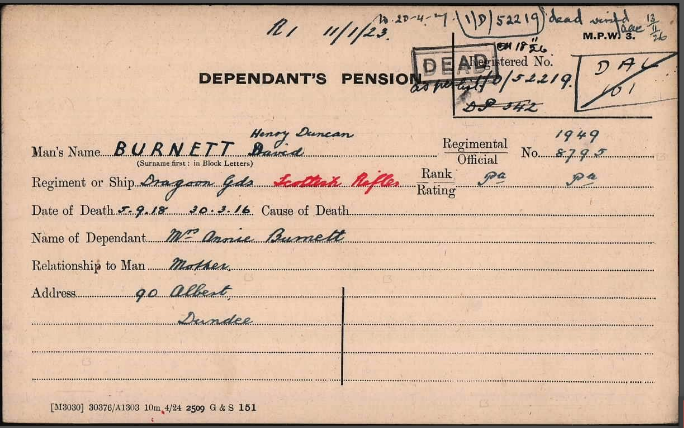 R1 11/1/23. 20-4-27 1/D/52219 dead
M.P.W. 3.
DEAD Registered No.
DEPENDANT'S PENSION 1/D/52219.
Henry Duncan 1949
Man's Name BURNETT David Regimental Official No. 8795
(Surname first: in Block Letters)
Regiment or Ship Dragoon Gds Scottish Rifles Rank Rating Pte Pte
Date of Death 5.9.18 20.2.16 Cause of Death
Name of Dependant Mrs Annie Burnett
Relationship to Man Mother.
Address 90 Albert,
Dundee
[M3030] 30376/A1303 10m 4/24 2509 G & S 151